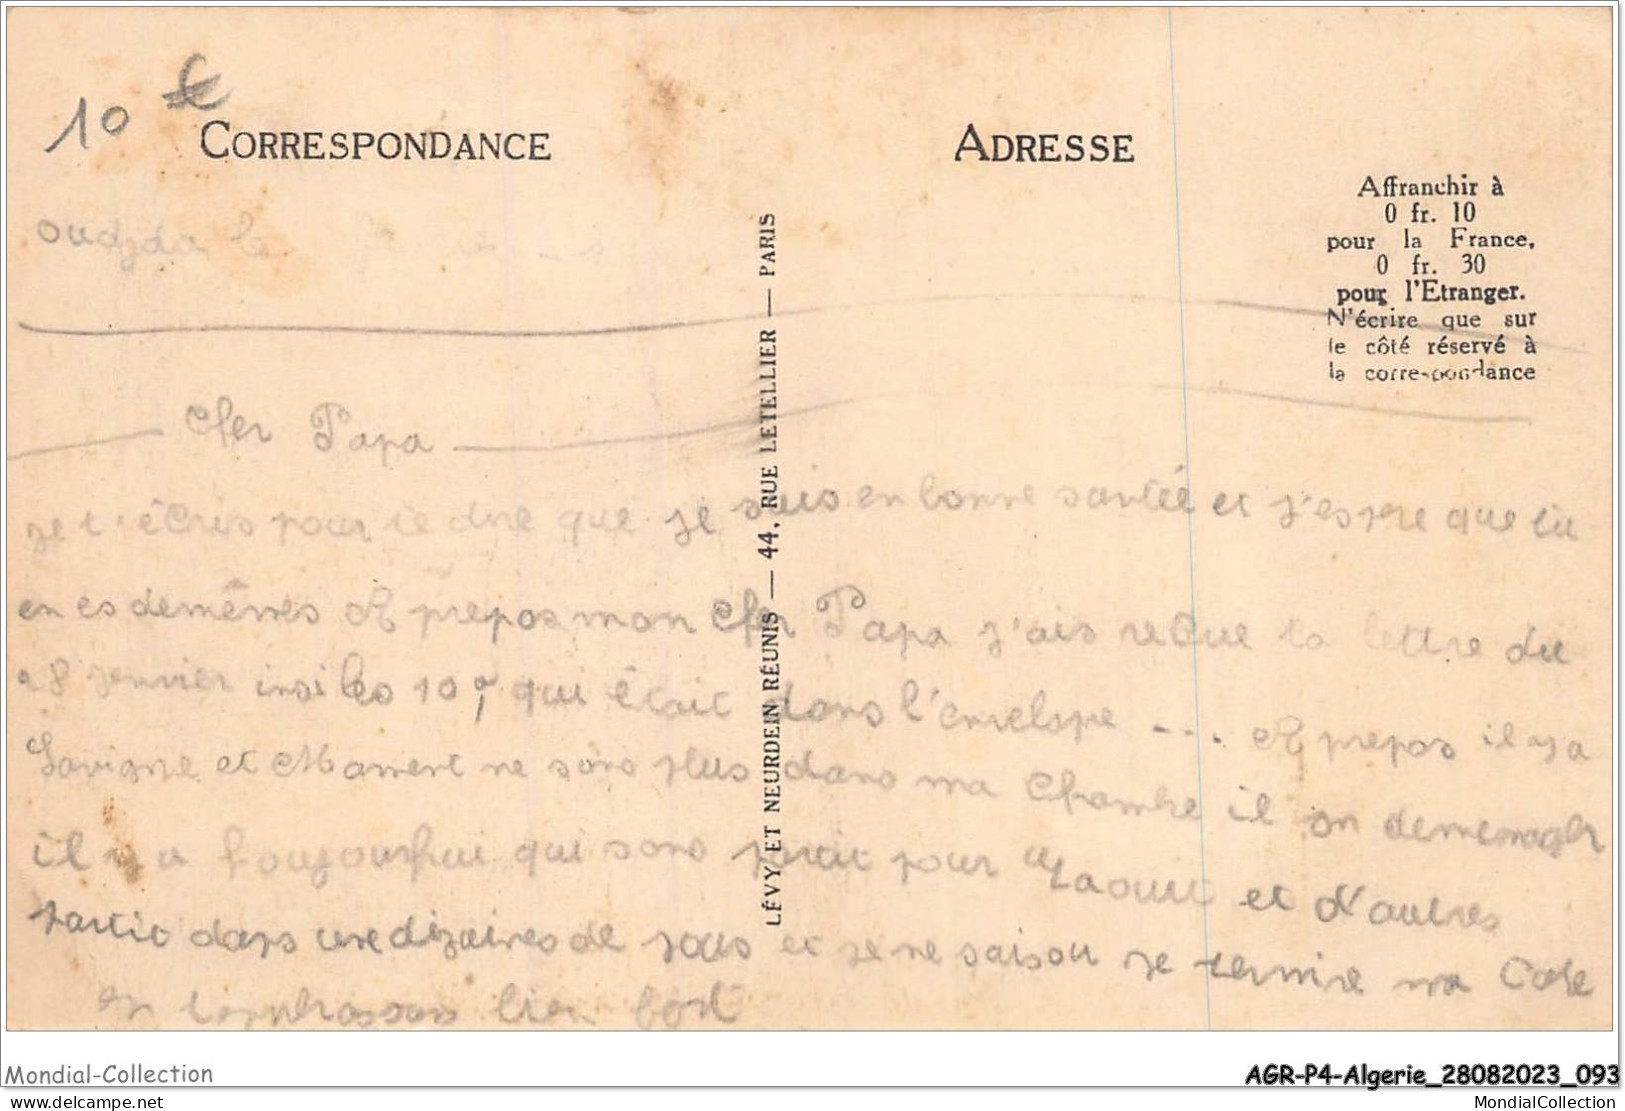 10 €
CORRESPONDANCE
ADRESSE
Affranchir à
0 fr. 10
pour la France,
0 fr. 30
pour l'Etranger.
N'écrire que sur
le côté réservé à
la correspondance
oudjda le
LÉVY ET NEURDEIN RÉUNIS — 44, RUE LETELLIER — PARIS
Cher Papa
je t'écris pour te dire que je suis en bonne santée et j'espre que tu
en es demêmes A prepos mon Cher Papa j'ais recue ta lettre du
28 janvier insi les 10 qui était dans l'envelope ... A prepos il y a
Lavigne et Mament ne sons plus dans ma Chambre il on demenager
il y a qui sons partit pour Taourit et d'autres
partit dans une dizaines de jous et je ne sais ou je termine ma Carte
en bien fort
Mondial-Collection
AGR-P4-Algerie_28082023_093
www.delcampe.net
MondialCollection